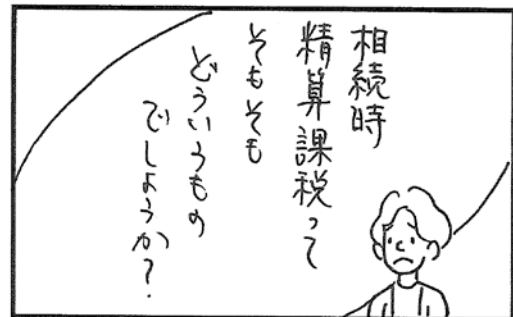 相続時
精算課税って
そもそも
どういうもの
でしょうか?